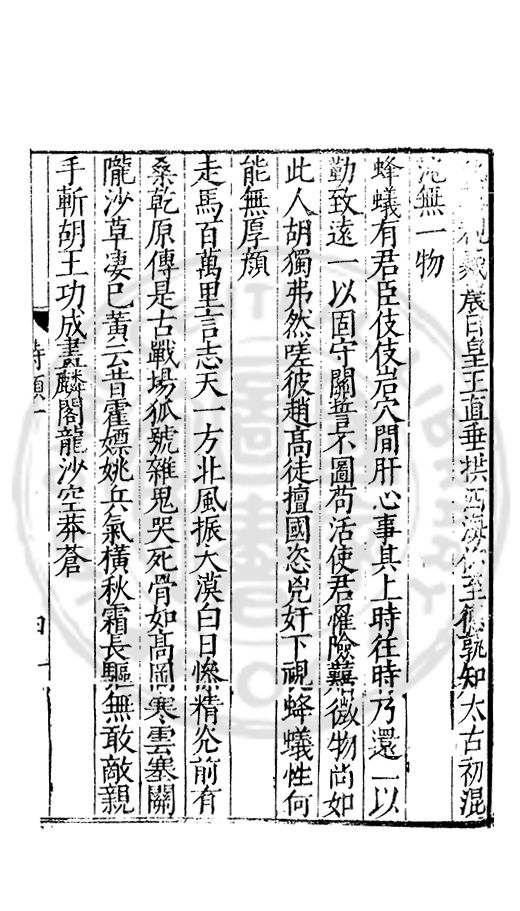 農日皇王直垂拱四海仰至德孰知太古初混
沌無一物
蜂蟻有君臣伎伎岩穴間肝心事其上時往時乃還一以
勤致遠一以固守關誓不圖苟活使君罹險囏微物尚如
此人胡獨弗然嗟彼趙高徒擅國恣兇奸下視蜂蟻性何
能無厚顔
走馬百萬里言志天一方北風振大漠白日慘精光前有
桑乾原傳是古戰場狐號雜鬼哭死骨如高岡寒雲塞關
隴沙草凄已黃云昔霍嫖姚兵氣橫秋霜長驅無敢敵親
手斬胡王功成畫麟閣龍沙空莽蒼